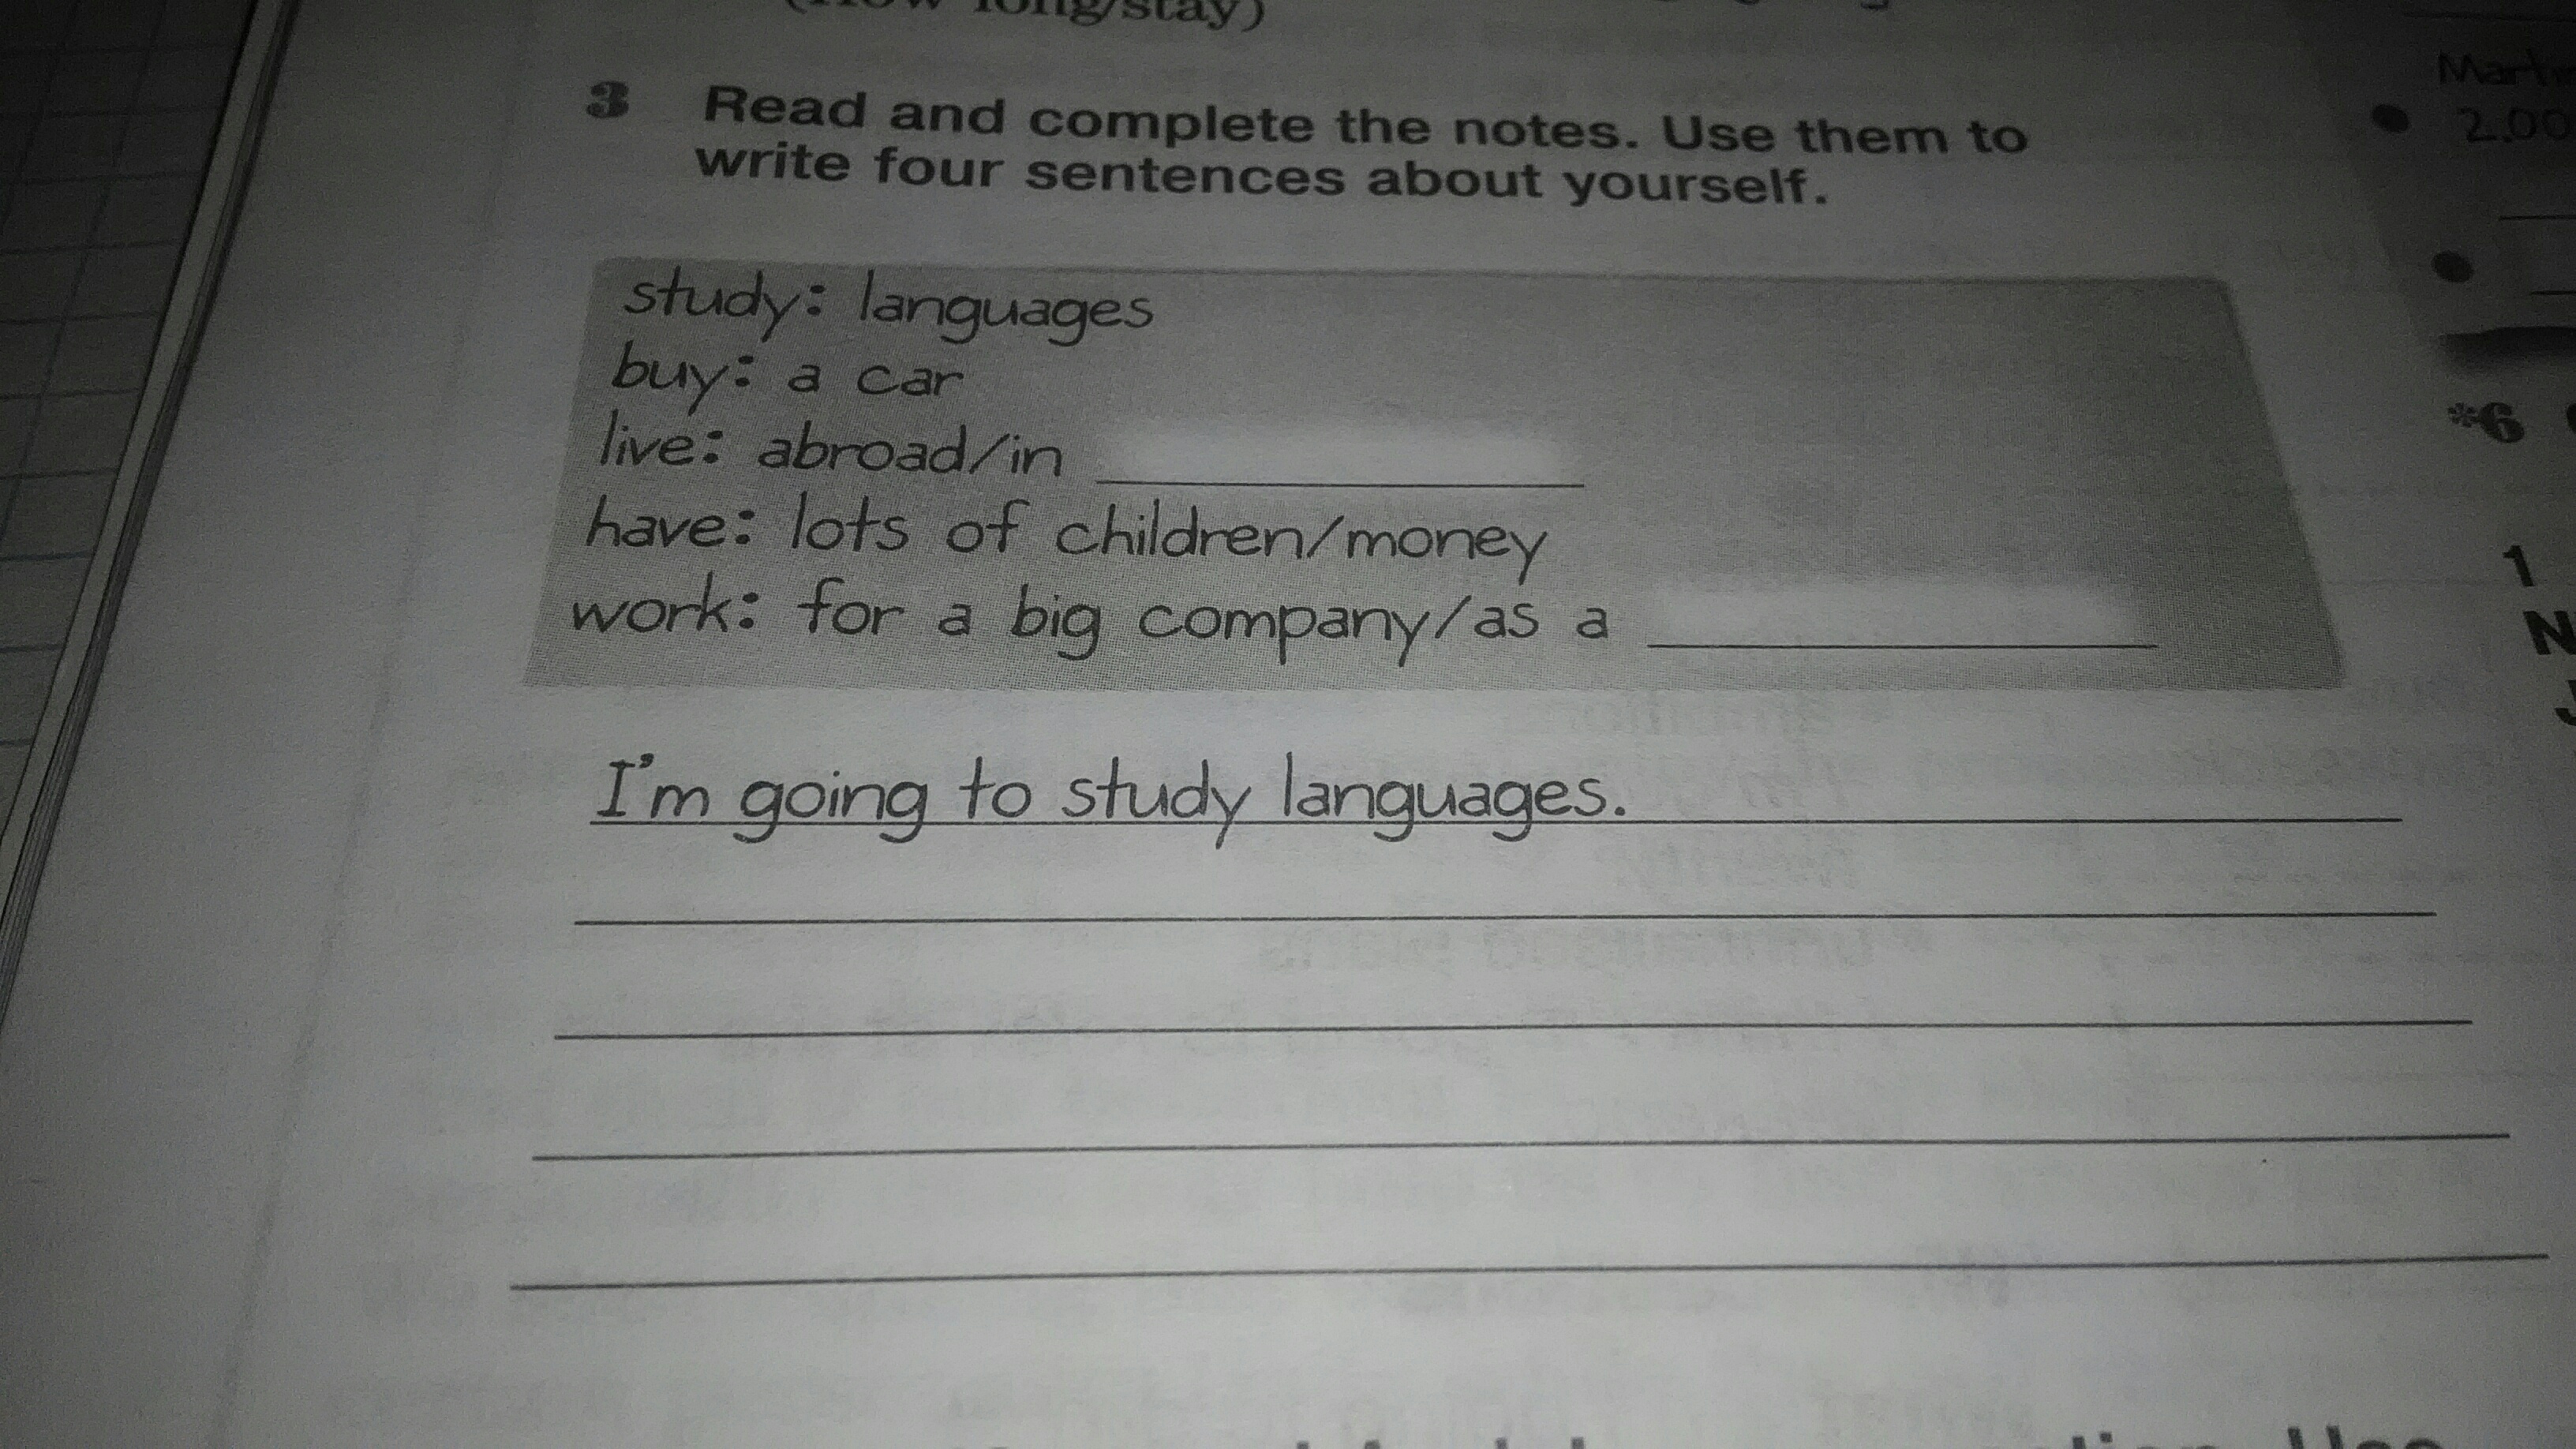 long/stay)
3 Read and complete the notes. Use them to
write four sentences about yourself.
study: languages
buy: a car
live: abroad/in
have: lots of children/money
work: for a big company/as a
I'm going to study languages.
2.00
*6
1
N